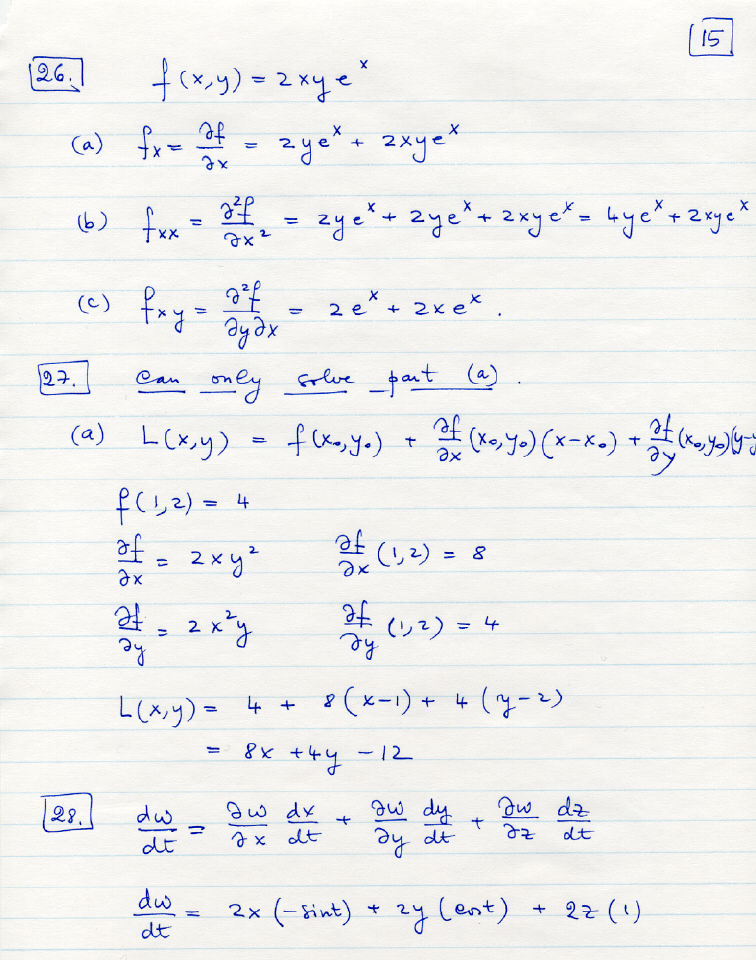 15
26. f(x,y) = 2xye^x
(a) fx = ∂f/∂x = 2ye^x + 2xye^x
(b) fxx = ∂²f/∂x² = 2ye^x + 2ye^x + 2xye^x = 4ye^x + 2xye^x
(c) fxy = ∂²f/∂y∂x = 2e^x + 2xe^x .
27. Can only solve part (a) .
(a) L(x,y) = f(x₀,y₀) + ∂f/∂x (x₀,y₀)(x-x₀) + ∂f/∂y (x₀,y₀)(y-y
f(1,2) = 4
∂f/∂x = 2xy² ∂f/∂x (1,2) = 8
∂f/∂y = 2x²y ∂f/∂y (1,2) = 4
L(x,y) = 4 + 8(x-1) + 4(y-2)
= 8x + 4y - 12
28. dw/dt = ∂w/∂x dx/dt + ∂w/∂y dy/dt + ∂w/∂z dz/dt
dw/dt = 2x(-sint) + 2y(cost) + 2z(1)